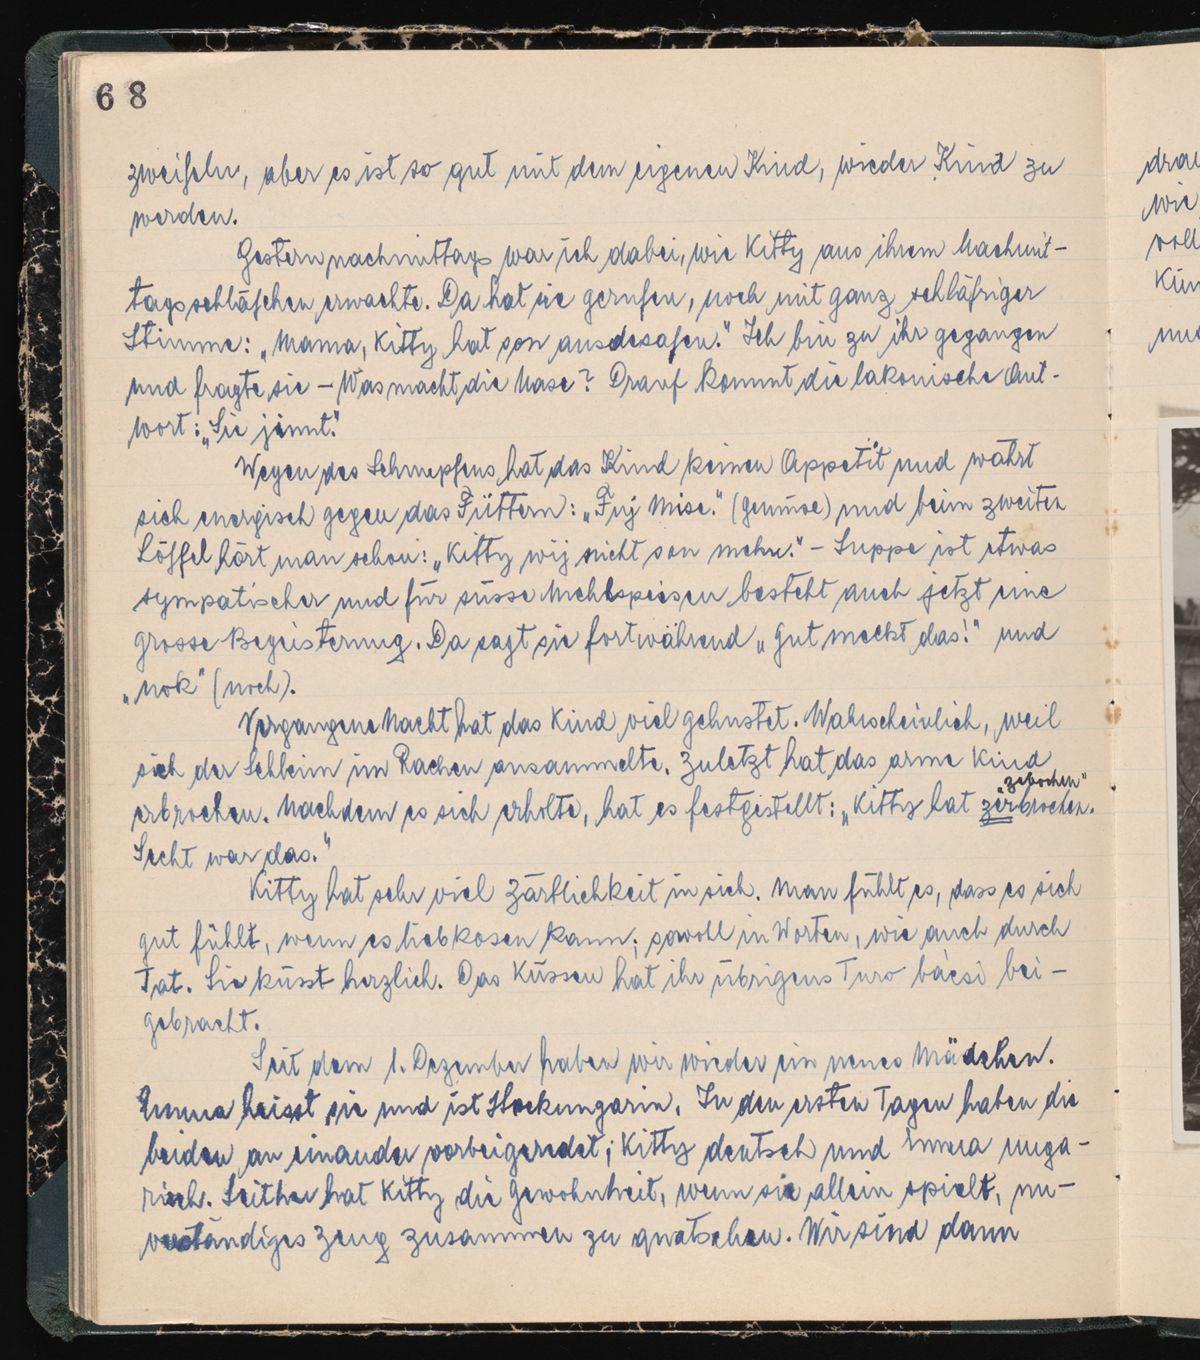 68
zweifeln, aber es ist so gut mit dem eigenen Kind, wieder Kind zu
werden.
Gestern nachmittags war ich dabei, wie Kitty aus ihrem Nachmit-
tagsschläfchen erwachte. Da hat sie gerufen, noch mit ganz schläfriger
Stimme: „Mama, Kitty hat son ausdesafen." Ich bin zu ihr gegangen
und fragte sie – Was macht die Nase? Drauf kommt die lakonische Ant-
wort: „Sie jinnt."
Wegen des Schnupfens hat das Kind keinen Appetit und wehrt
sich energisch gegen das Füttern: „Fuj Mise." (Gemüse) und beim zweiten
Löffel hört man schon: „Kitty wij nicht son mehr." – Suppe ist etwas
sympatischer und für süsse Mehlspeisen besteht auch jetzt eine
grosse Begeisterung. Da sagt sie fortwährend „Gut meckt das!" und
„nok" (noch).
Vergangene Nacht hat das Kind viel gehustet. Wahrscheinlich, weil
sich der Schleim im Rachen ansammelte. Zuletzt hat das arme Kind
„zebochen"
erbrochen. Nachdem es sich erholte, hat es festgestellt: „Kitty hat zerbrochen.
Secht war das."
Kitty hat sehr viel Zärtlichkeit in sich. Man fühlt es, dass es sich
gut fühlt, wenn es liebkosen kann; sowohl in Worten, wie auch durch
Tat. Sie küsst herzlich. Das Küssen hat ihr übrigens Turo bácsi bei-
gebracht.
Seit dem 1. Dezember haben wir wieder ein neues Mädchen.
Emma heisst sie und ist Stockungarin. In den ersten Tagen haben die
beiden an einander vorbeigeredet; Kitty deutsch und Emma unga-
risch. Seither hat Kitty die Gewohnheit, wenn sie allein spielt, un-
verständiges Zeug zusammen zu quatschen. Wir sind dann
wie
voll